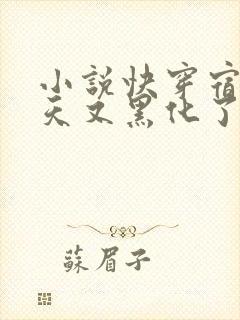 小說快穿宿
天又黑化了
蘇眉子